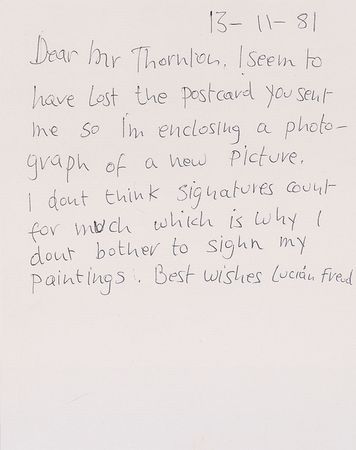 13-11-81
Dear Mr Thornton. I seem to
have lost the postcard you sent
me so I'm enclosing a photo-
graph of a new picture.
I dont think signatures count
for much which is why I
dont bother to sighn my
paintings. Best wishes Lucian Freud